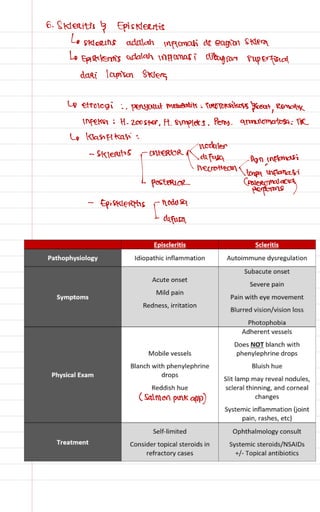 6. Skleritis & Episkleritis
↳ Skleritis adalah inflamasi di bagian sklera
↳ Episkleritis adalah inflamasi dibagian superfisial
dari lapisan sklera
↳ etiologi : penyakit
Infeksi : H. Zoester, H. simpleks, Peny. granulomatosa : TBC
↳ Klasifikasi :
- Skleritis
anterior
nodular
difusa
necrotican
dgn inflamasi
tanpa inflamasi
posterior
- Episkleritis
nodosa
difusa
Episcleritis Scleritis
Pathophysiology Idiopathic inflammation Autoimmune dysregulation
Symptoms
Acute onset
Mild pain
Redness, irritation
Subacute onset
Severe pain
Pain with eye movement
Blurred vision/vision loss
Photophobia
Physical Exam
Mobile vessels
Blanch with phenylephrine
drops
Reddish hue
(Salmon pink app)
Adherent vessels
Does NOT blanch with
phenylephrine drops
Bluish hue
Slit lamp may reveal nodules,
scleral thinning, and corneal
changes
Systemic inflammation (joint
pain, rashes, etc)
Treatment
Self-limited
Consider topical steroids in
refractory cases
Ophthalmology consult
Systemic steroids/NSAIDs
+/- Topical antibiotics